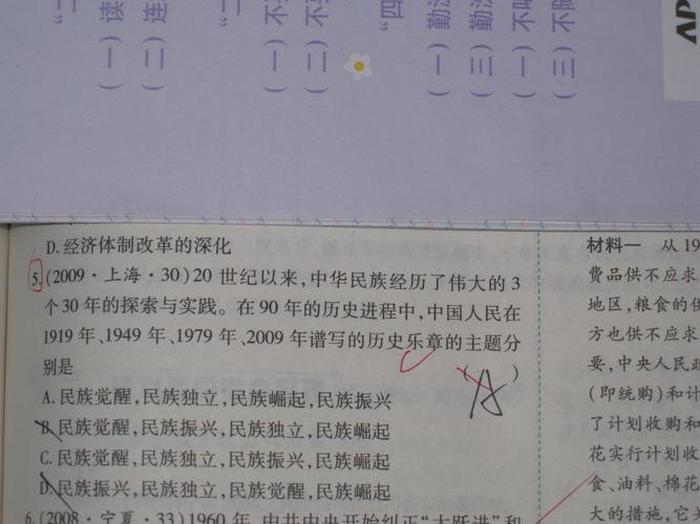 “二
(一)读
(二)连
(一)不
(二)不
“四
(一)勤
(三)勤
(一)不
(三)不随
AP
D.经济体制改革的深化
5.(2009·上海·30)20世纪以来,中华民族经历了伟大的3
个30年的探索与实践。在90年的历史进程中,中国人民在
1919年、1949年、1979年、2009年谱写的历史乐章的主题分
别是 ( )
A
A.民族觉醒,民族独立,民族崛起,民族振兴
B.民族觉醒,民族振兴,民族独立,民族崛起
C.民族觉醒,民族独立,民族振兴,民族崛起
D.民族振兴,民族独立,民族觉醒,民族崛起
6.(2008·宁夏·33)1960年,中共中央开始纠正“大跃进”和
材料一 从19
费品供不应求
地区,粮食的
方也供不应求
要,中央人民政
(即统购)和计
了计划收购和
花实行计划收
食、油料、棉花
大的措施,它